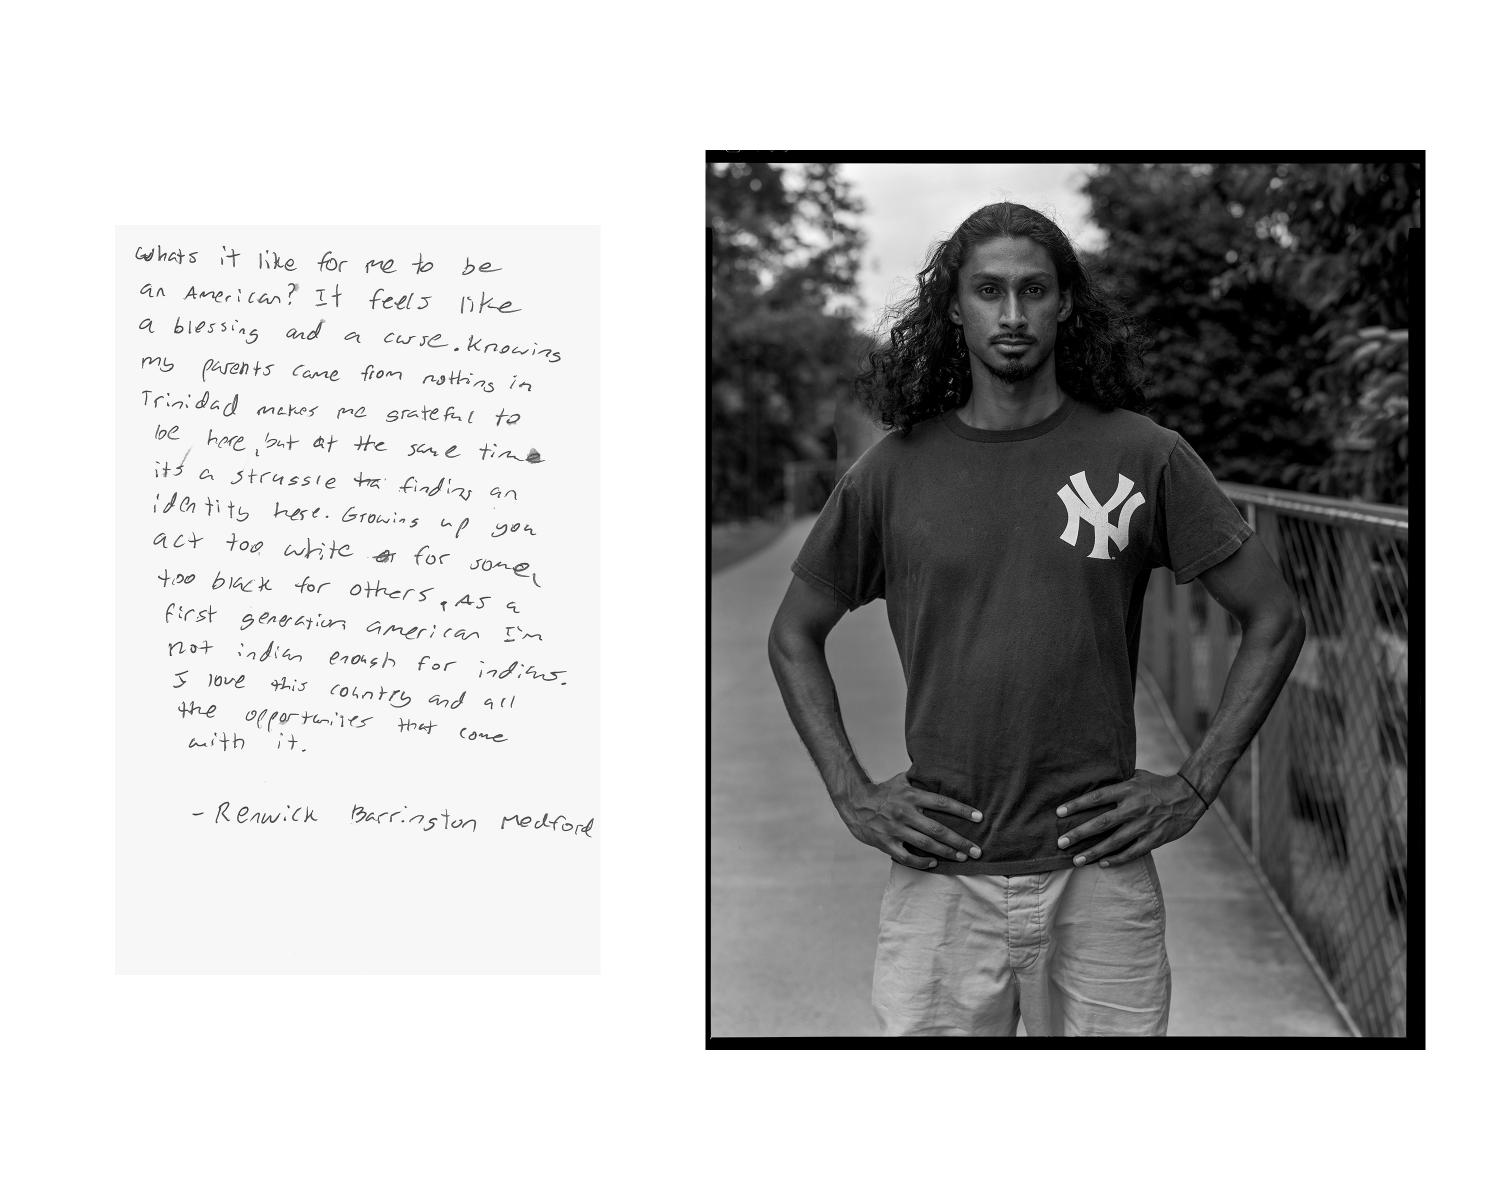 Whats it like for me to be
an American? It feels like
a blessing and a curse. Knowing
my parents came from nothing in
Trinidad makes me grateful to
be here, but at the same time
its a struggle finding an
identity here. Growing up you
act too white for some,
too black for others. As a
first generation american I'm
not indian enough for indians.
I love this country and all
the opportunites that come
with it.
- Renwick Barrington Medford
NY